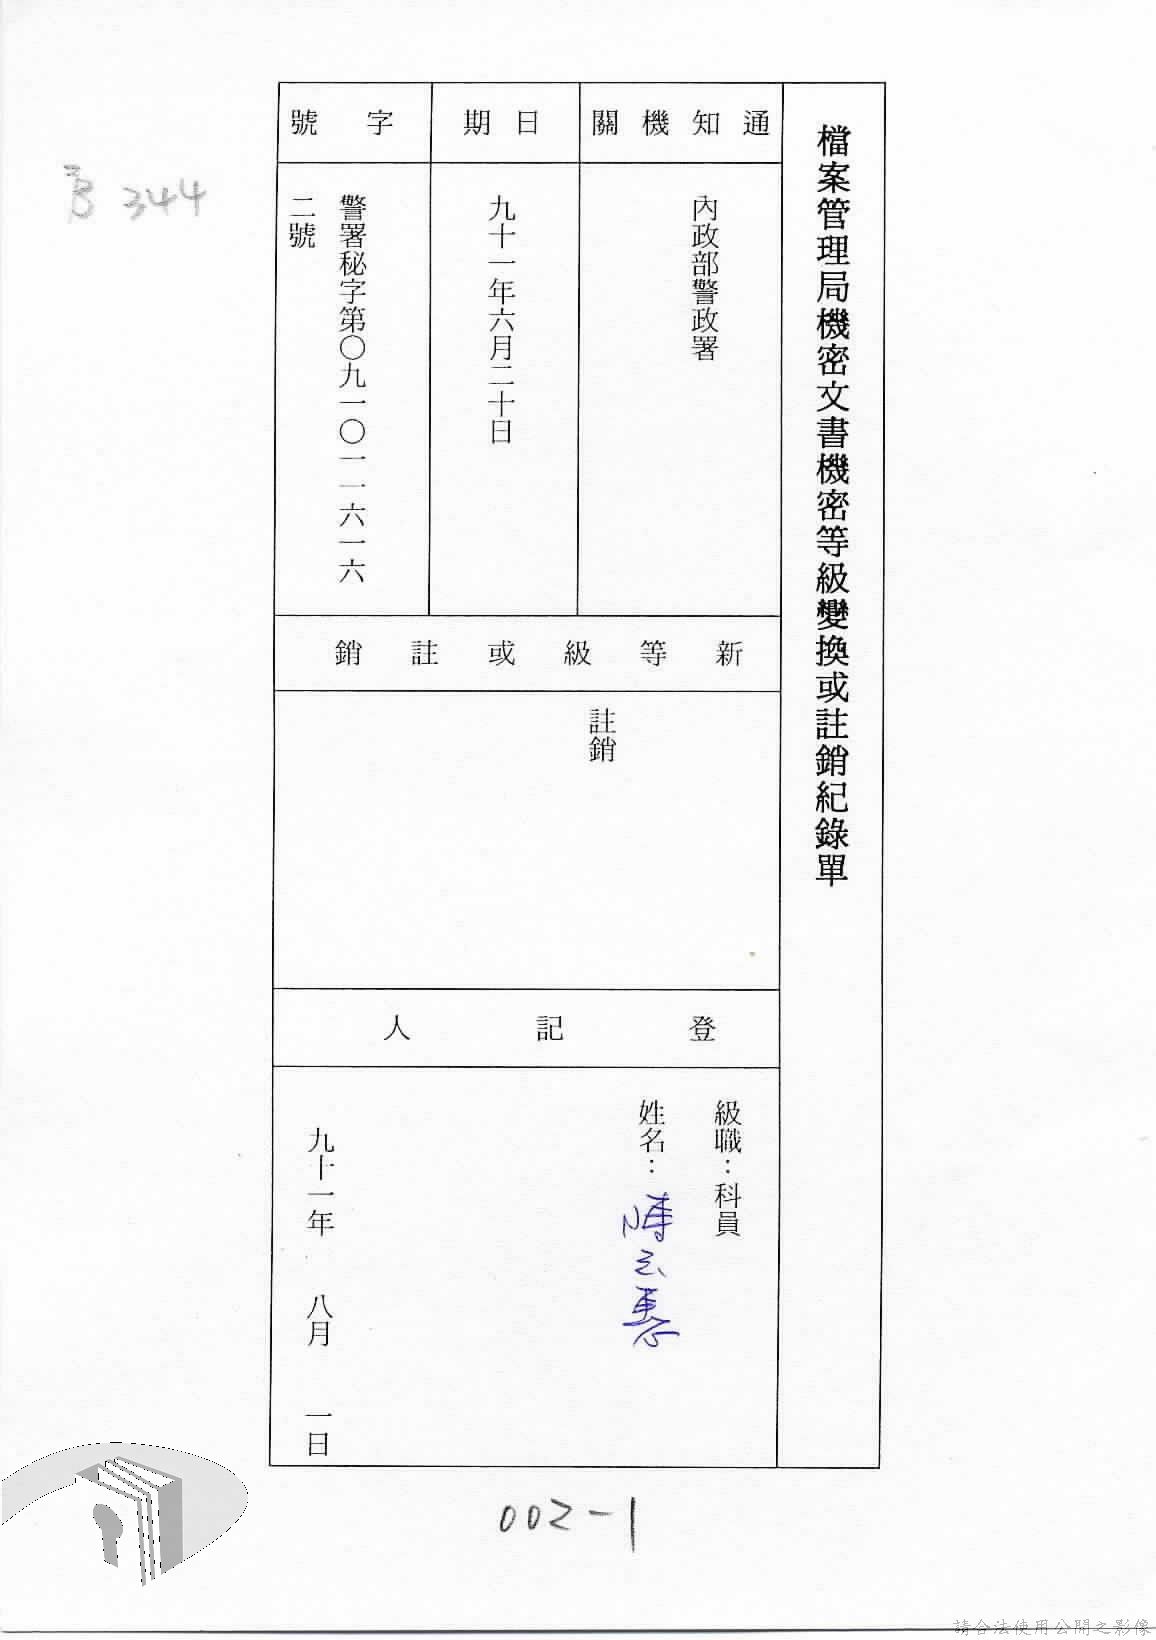 檔案管理局機密文書機密等級變換或註銷紀錄單
通知機關
內政部警政署
日期
九十一年六月二十日
字號
警署秘字第〇九一〇一一六一六
二號
新等級或註銷
註銷
登記人
級職：科員
姓名：陳
九十一年 八月 一日
344
002-1
請合法使用公開之影像